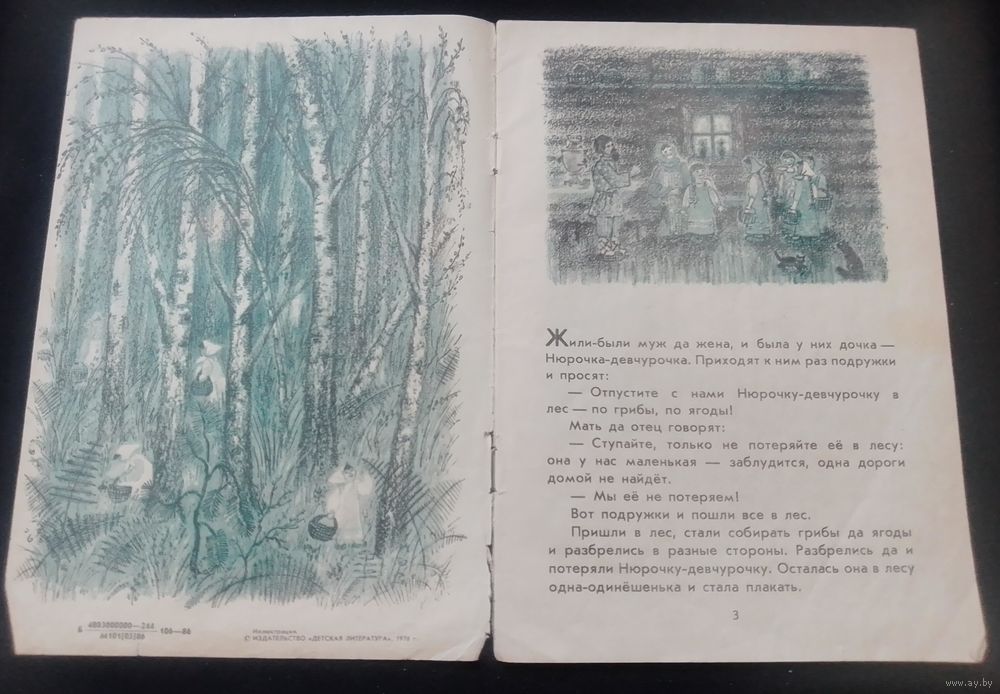 6 4803000000—244
М101(03)86
106—86
Иллюстрации
© ИЗДАТЕЛЬСТВО «ДЕТСКАЯ ЛИТЕРАТУРА», 1976 г.
Жили-были муж да жена, и была у них дочка —
Нюрочка-девчурочка. Приходят к ним раз подружки
и просят:
— Отпустите с нами Нюрочку-девчурочку в
лес — по грибы, по ягоды!
Мать да отец говорят:
— Ступайте, только не потеряйте её в лесу:
она у нас маленькая — заблудится, одна дороги
домой не найдёт.
— Мы её не потеряем!
Вот подружки и пошли все в лес.
Пришли в лес, стали собирать грибы да ягоды
и разбрелись в разные стороны. Разбрелись да и
потеряли Нюрочку-девчурочку. Осталась она в лесу
одна-одинёшенька и стала плакать.
3
www.ay.by